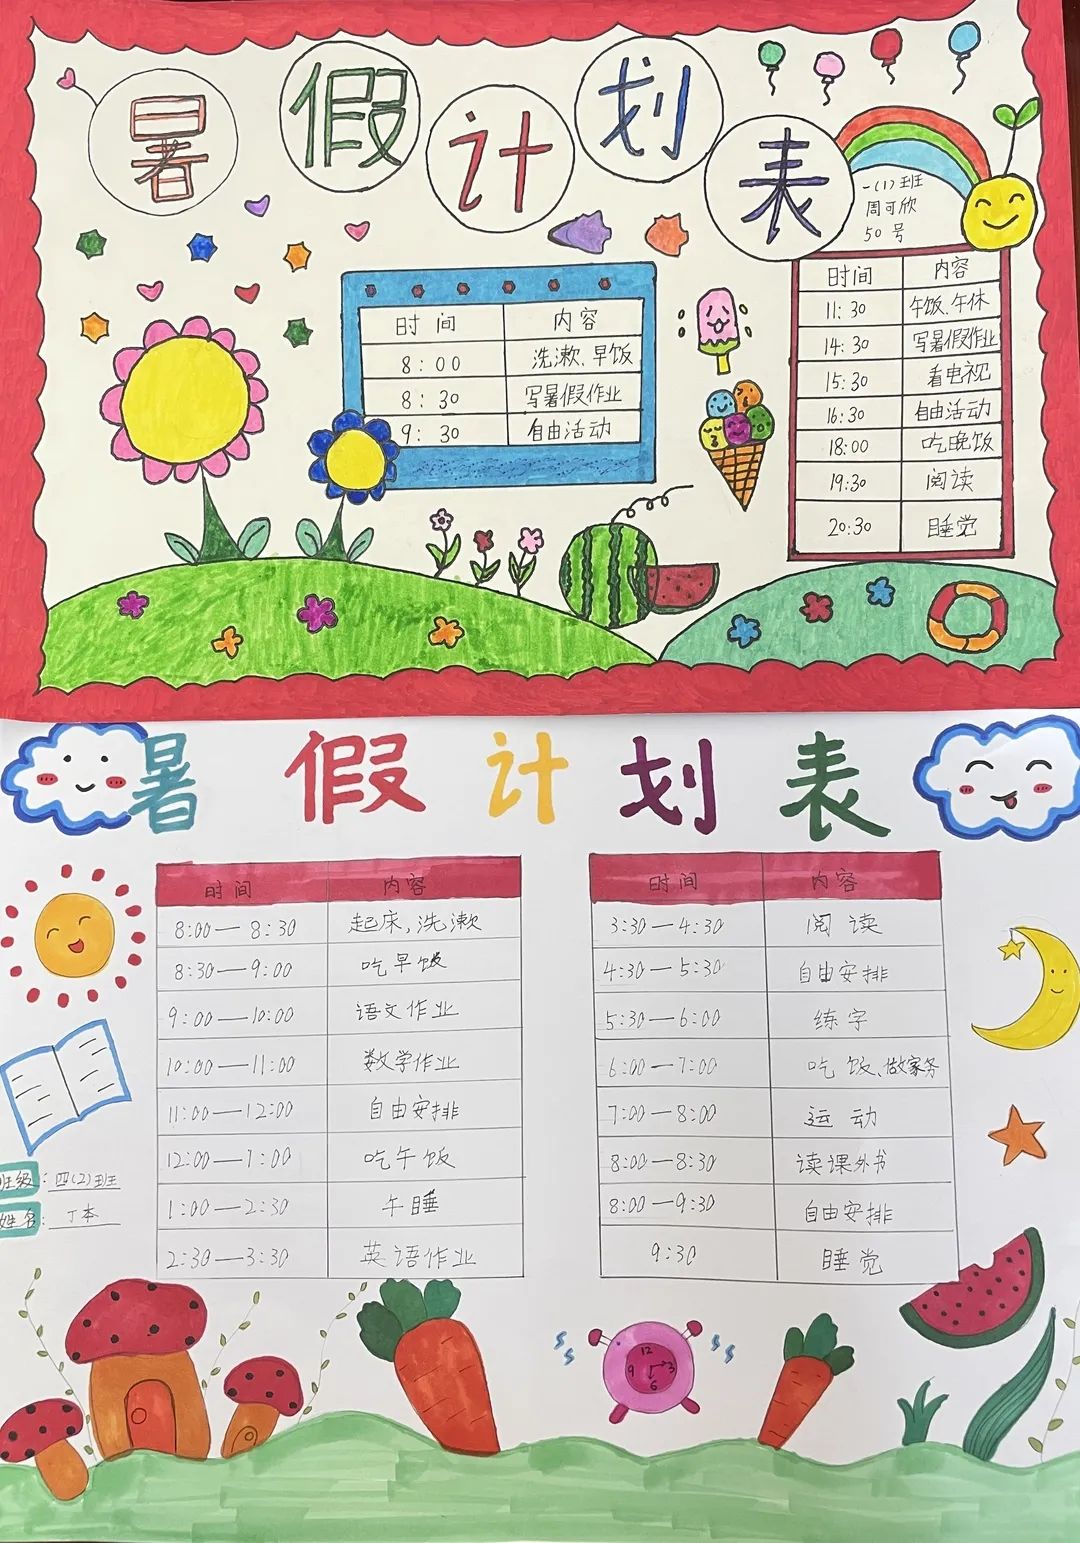 暑假计划表
一(1)班
周可欣
50号
时间 内容
8:00 洗漱、早饭
8:30 写暑假作业
9:30 自由活动
时间 内容
11:30 午饭、午休
14:30 写暑假作业
15:30 看电视
16:30 自由活动
18:00 吃晚饭
19:30 阅读
20:30 睡觉
暑假计划表
时间 内容
8:00—8:30 起床,洗漱
8:30—9:00 吃早饭
9:00—10:00 语文作业
10:00—11:00 数学作业
11:00—12:00 自由安排
12:00—1:00 吃午饭
1:00—2:30 午睡
2:30—3:30 英语作业
时间 内容
3:30—4:30 阅读
4:30—5:30 自由安排
5:30—6:00 练字
6:00—7:00 吃饭、做家务
7:00—8:00 运动
8:00—8:30 读课外书
8:00—9:30 自由安排
9:30 睡觉
班级:四(2)班
姓名:丁本
12
9 3
6